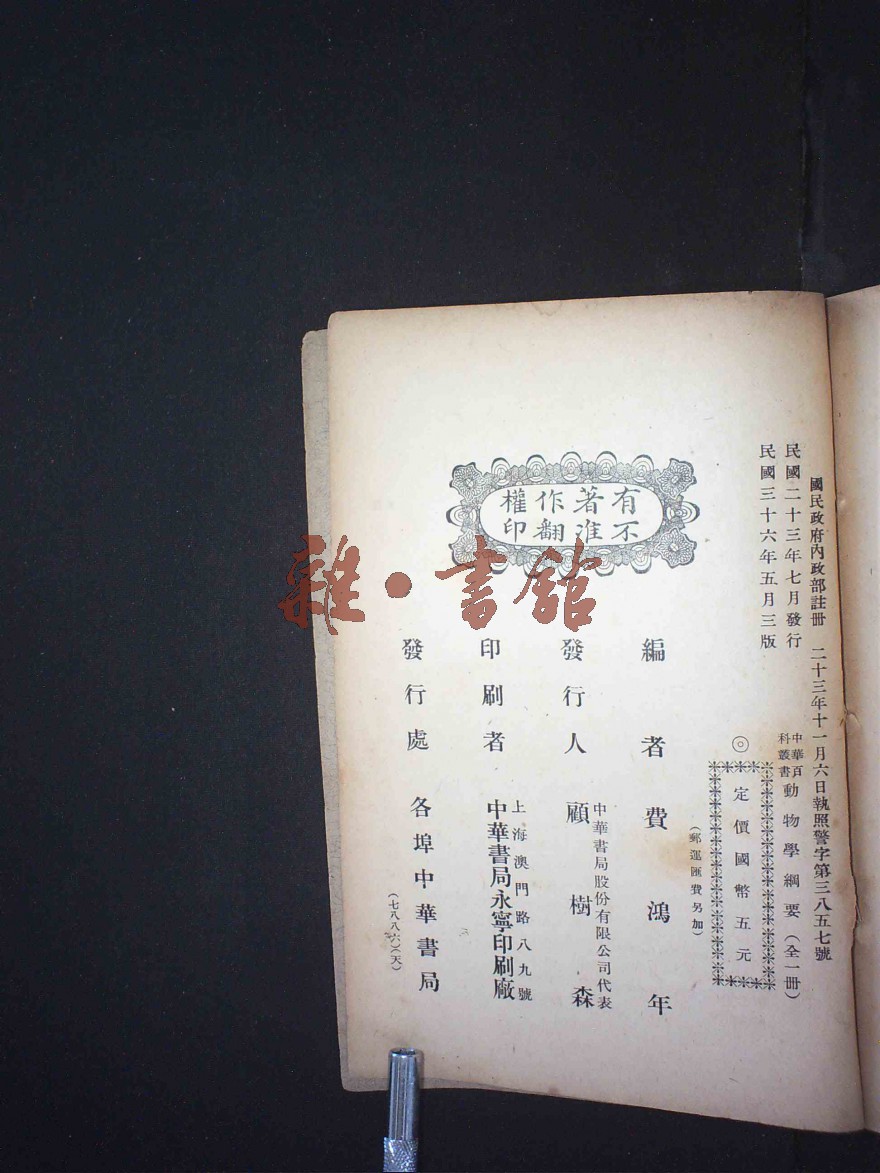 國民政府內政部註冊 二十三年十一月六日執照警字第三八五七號
民國二十三年七月發行
民國三十六年五月三版
中華百科叢書 動物學綱要(全一冊)
◎定價國幣五元
(郵運匯費另加)
有著作權
不准翻印
編者 費鴻年
發行人 中華書局股份有限公司代表
顧樹森
印刷者 上海澳門路八九號
中華書局永寧印刷廠
發行處 各埠中華書局
(七八八六)(天)
雜·書館